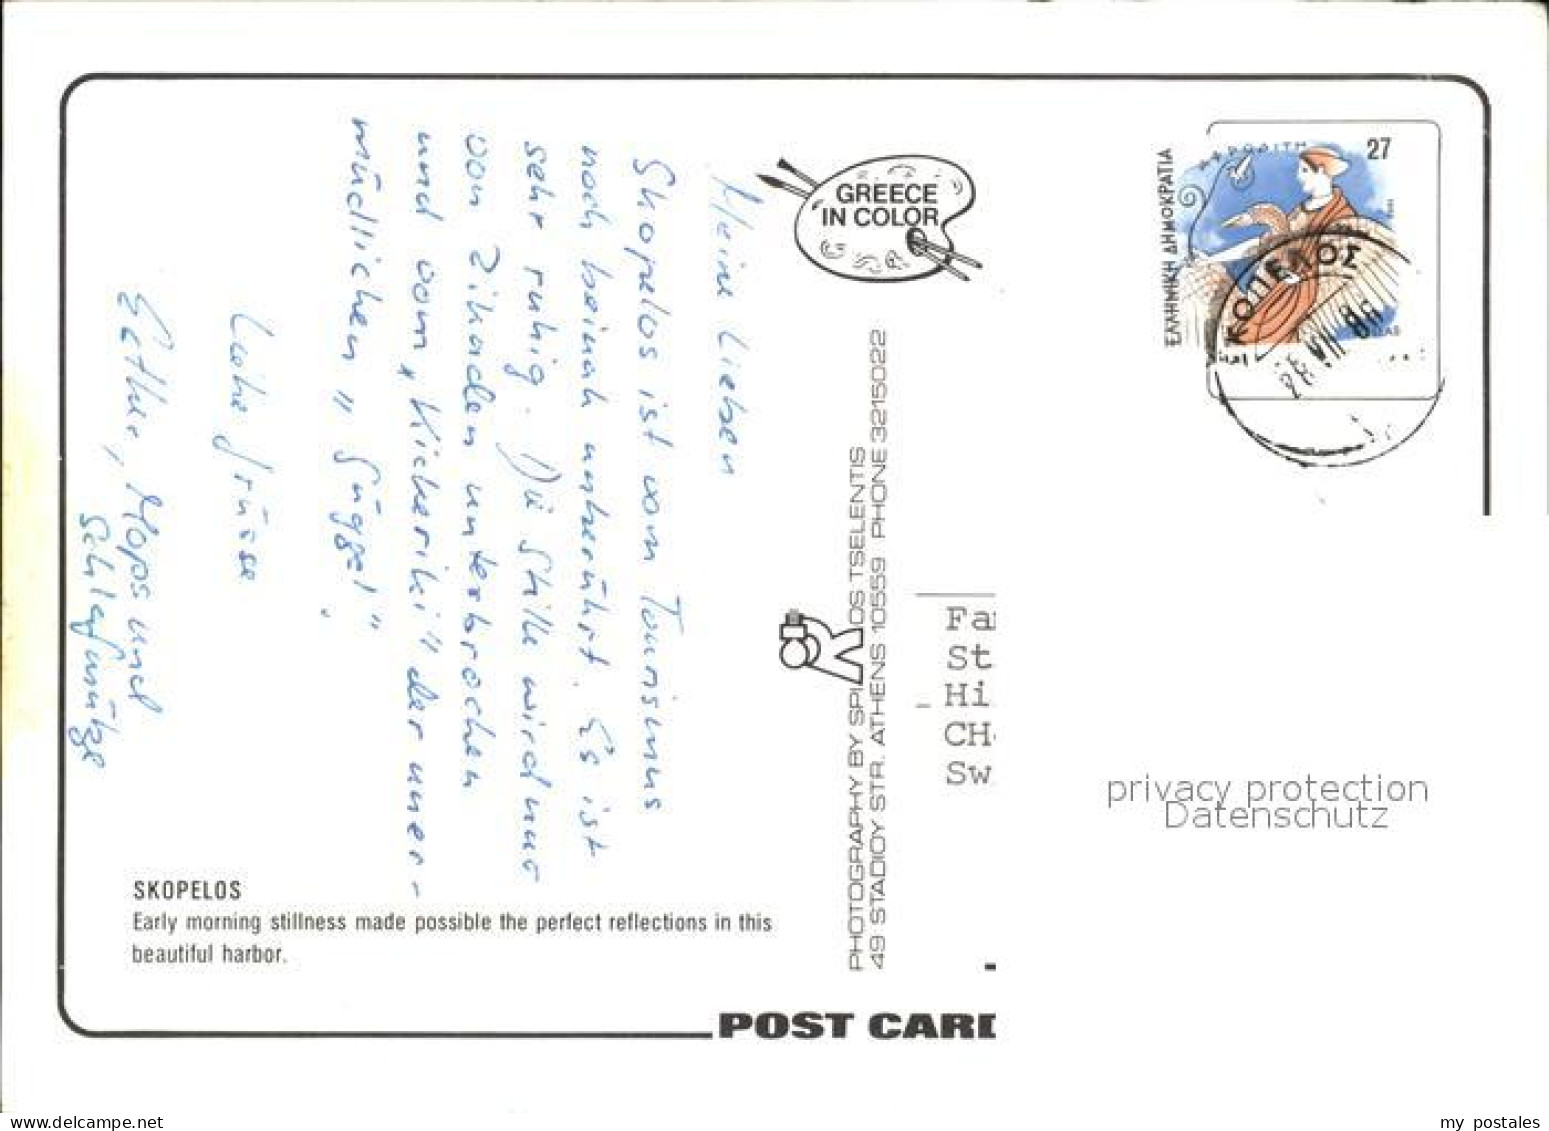 Meine Lieben
Skopelos ist vom Tourismus
noch beinah unberührt. Es ist
sehr ruhig. Die Stille wird nur
von Zikaden unterbrochen
und vom „Kickeriki" der uner-
müdlichen „Güggel"!
Liebe Grüsse
Esther, Mops und
Schlafmütze
SKOPELOS
Early morning stillness made possible the perfect reflections in this
beautiful harbor.
GREECE
IN COLOR
PHOTOGRAPHY BY SPI OS TSELENTIS
49 STADIOY STR. ATHENS 10559 PHONE 3215022
POST CARD
ΕΛΛΗΝΙΚΗ ΔΗΜΟΚΡΑΤΙΑ
ΑΦΡΟΔΙΤΗ
27
ΣΚΟΠΕΛΟΣ
Fa
St
Hi
CH-
Sw
privacy protection
Datenschutz
my postales